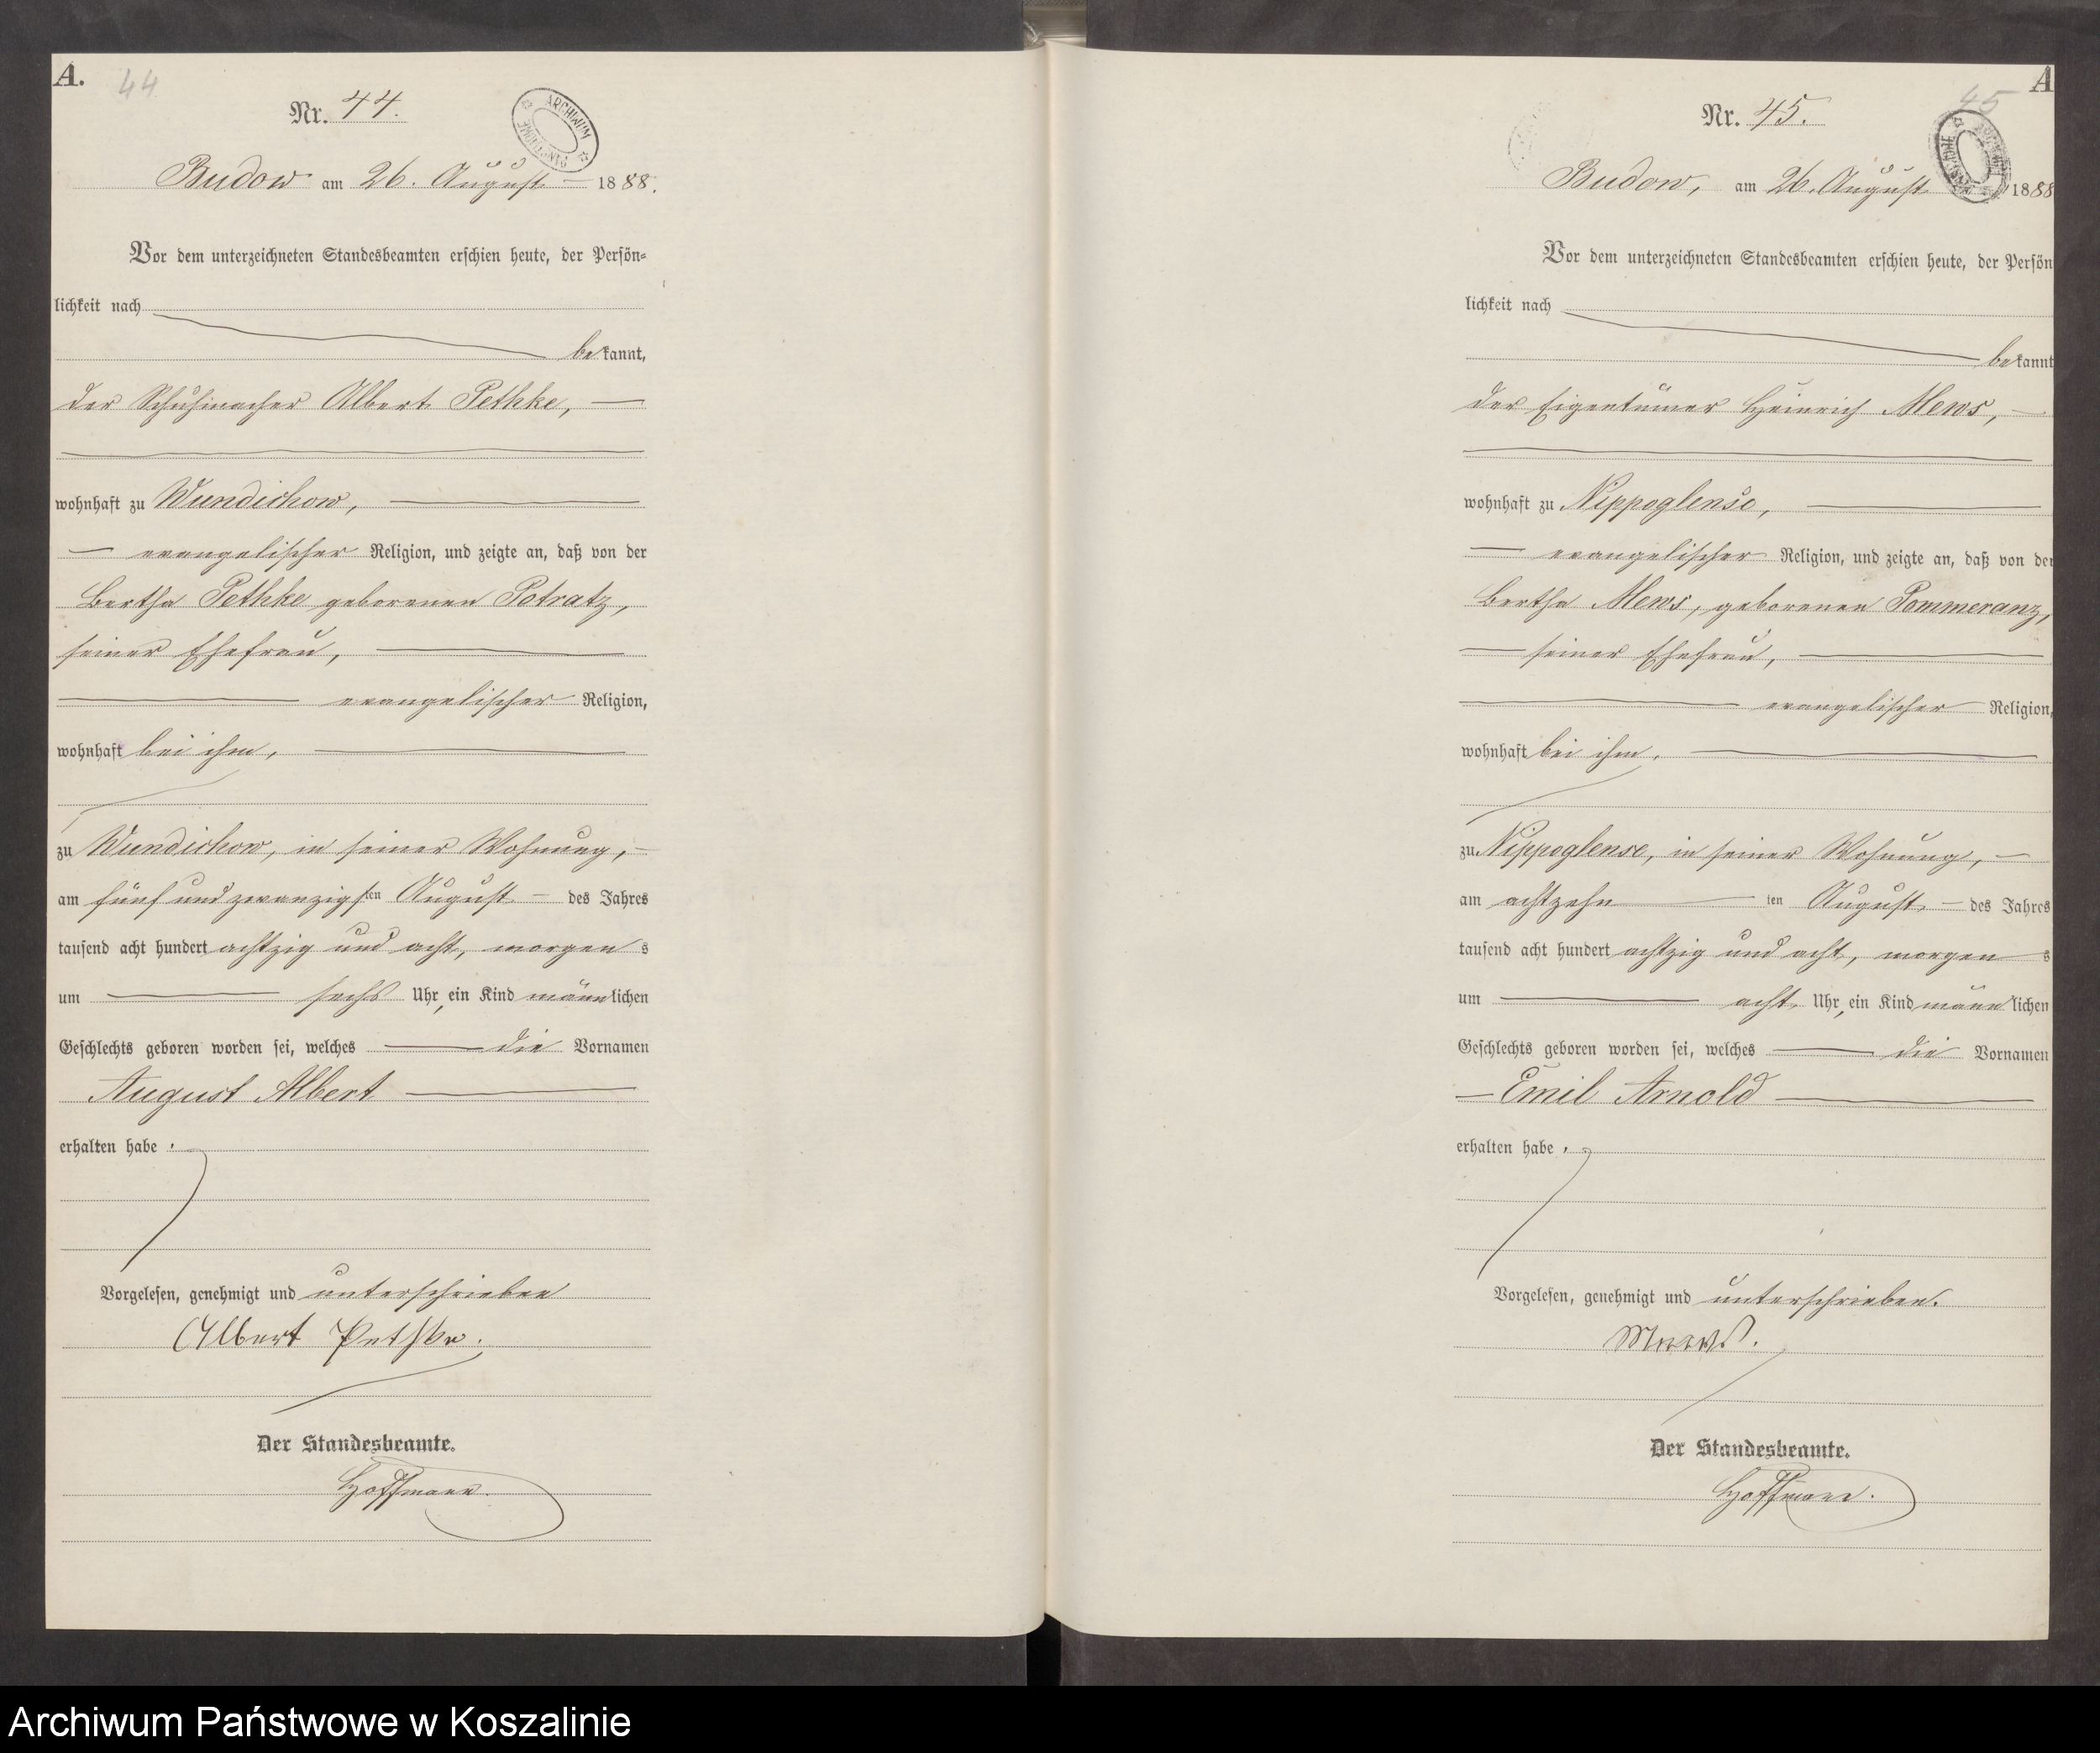 A.
44
Nr. 44.
ARCHIWUM PAŃSTWOWE
Budow am 26. August 1888.
Vor dem unterzeichneten Standesbeamten erschien heute, der Persön-
lichkeit nach
bekannt,
der Schuhmacher Albert Pethke,
wohnhaft zu Wundichow,
evangelischer Religion, und zeigte an, daß von der
Bertha Pethke geborenen Potratz,
seiner Ehefrau,
evangelischer Religion,
wohnhaft bei ihm,
zu Wundichow, in seiner Wohnung,
am fünf und zwanzigsten August des Jahres
tausend acht hundert achtzig und acht, morgens
um sechs Uhr, ein Kind männlichen
Geschlechts geboren worden sei, welches die Vornamen
August Albert
erhalten habe.
Vorgelesen, genehmigt und unterschrieben
Albert Pethke.
Der Standesbeamte.
Hoffmann.
A
45
Nr. 45.
Budow, am 26. August 1888
Vor dem unterzeichneten Standesbeamten erschien heute, der Persön
lichkeit nach
bekannt
der Eigentümer Heinrich Mews,
wohnhaft zu Nippoglense,
evangelischer Religion, und zeigte an, daß von der
Bertha Mews, geborenen Pommeranz,
seiner Ehefrau,
evangelischer Religion,
wohnhaft bei ihm,
zu Nippoglense, in seiner Wohnung,
am achtzehnten August des Jahres
tausend acht hundert achtzig und acht, morgens
um acht Uhr, ein Kind männlichen
Geschlechts geboren worden sei, welches die Vornamen
Emil Arnold
erhalten habe.
Vorgelesen, genehmigt und unterschrieben.
Mews.
Der Standesbeamte.
Hoffmann.
Archiwum Państwowe w Koszalinie